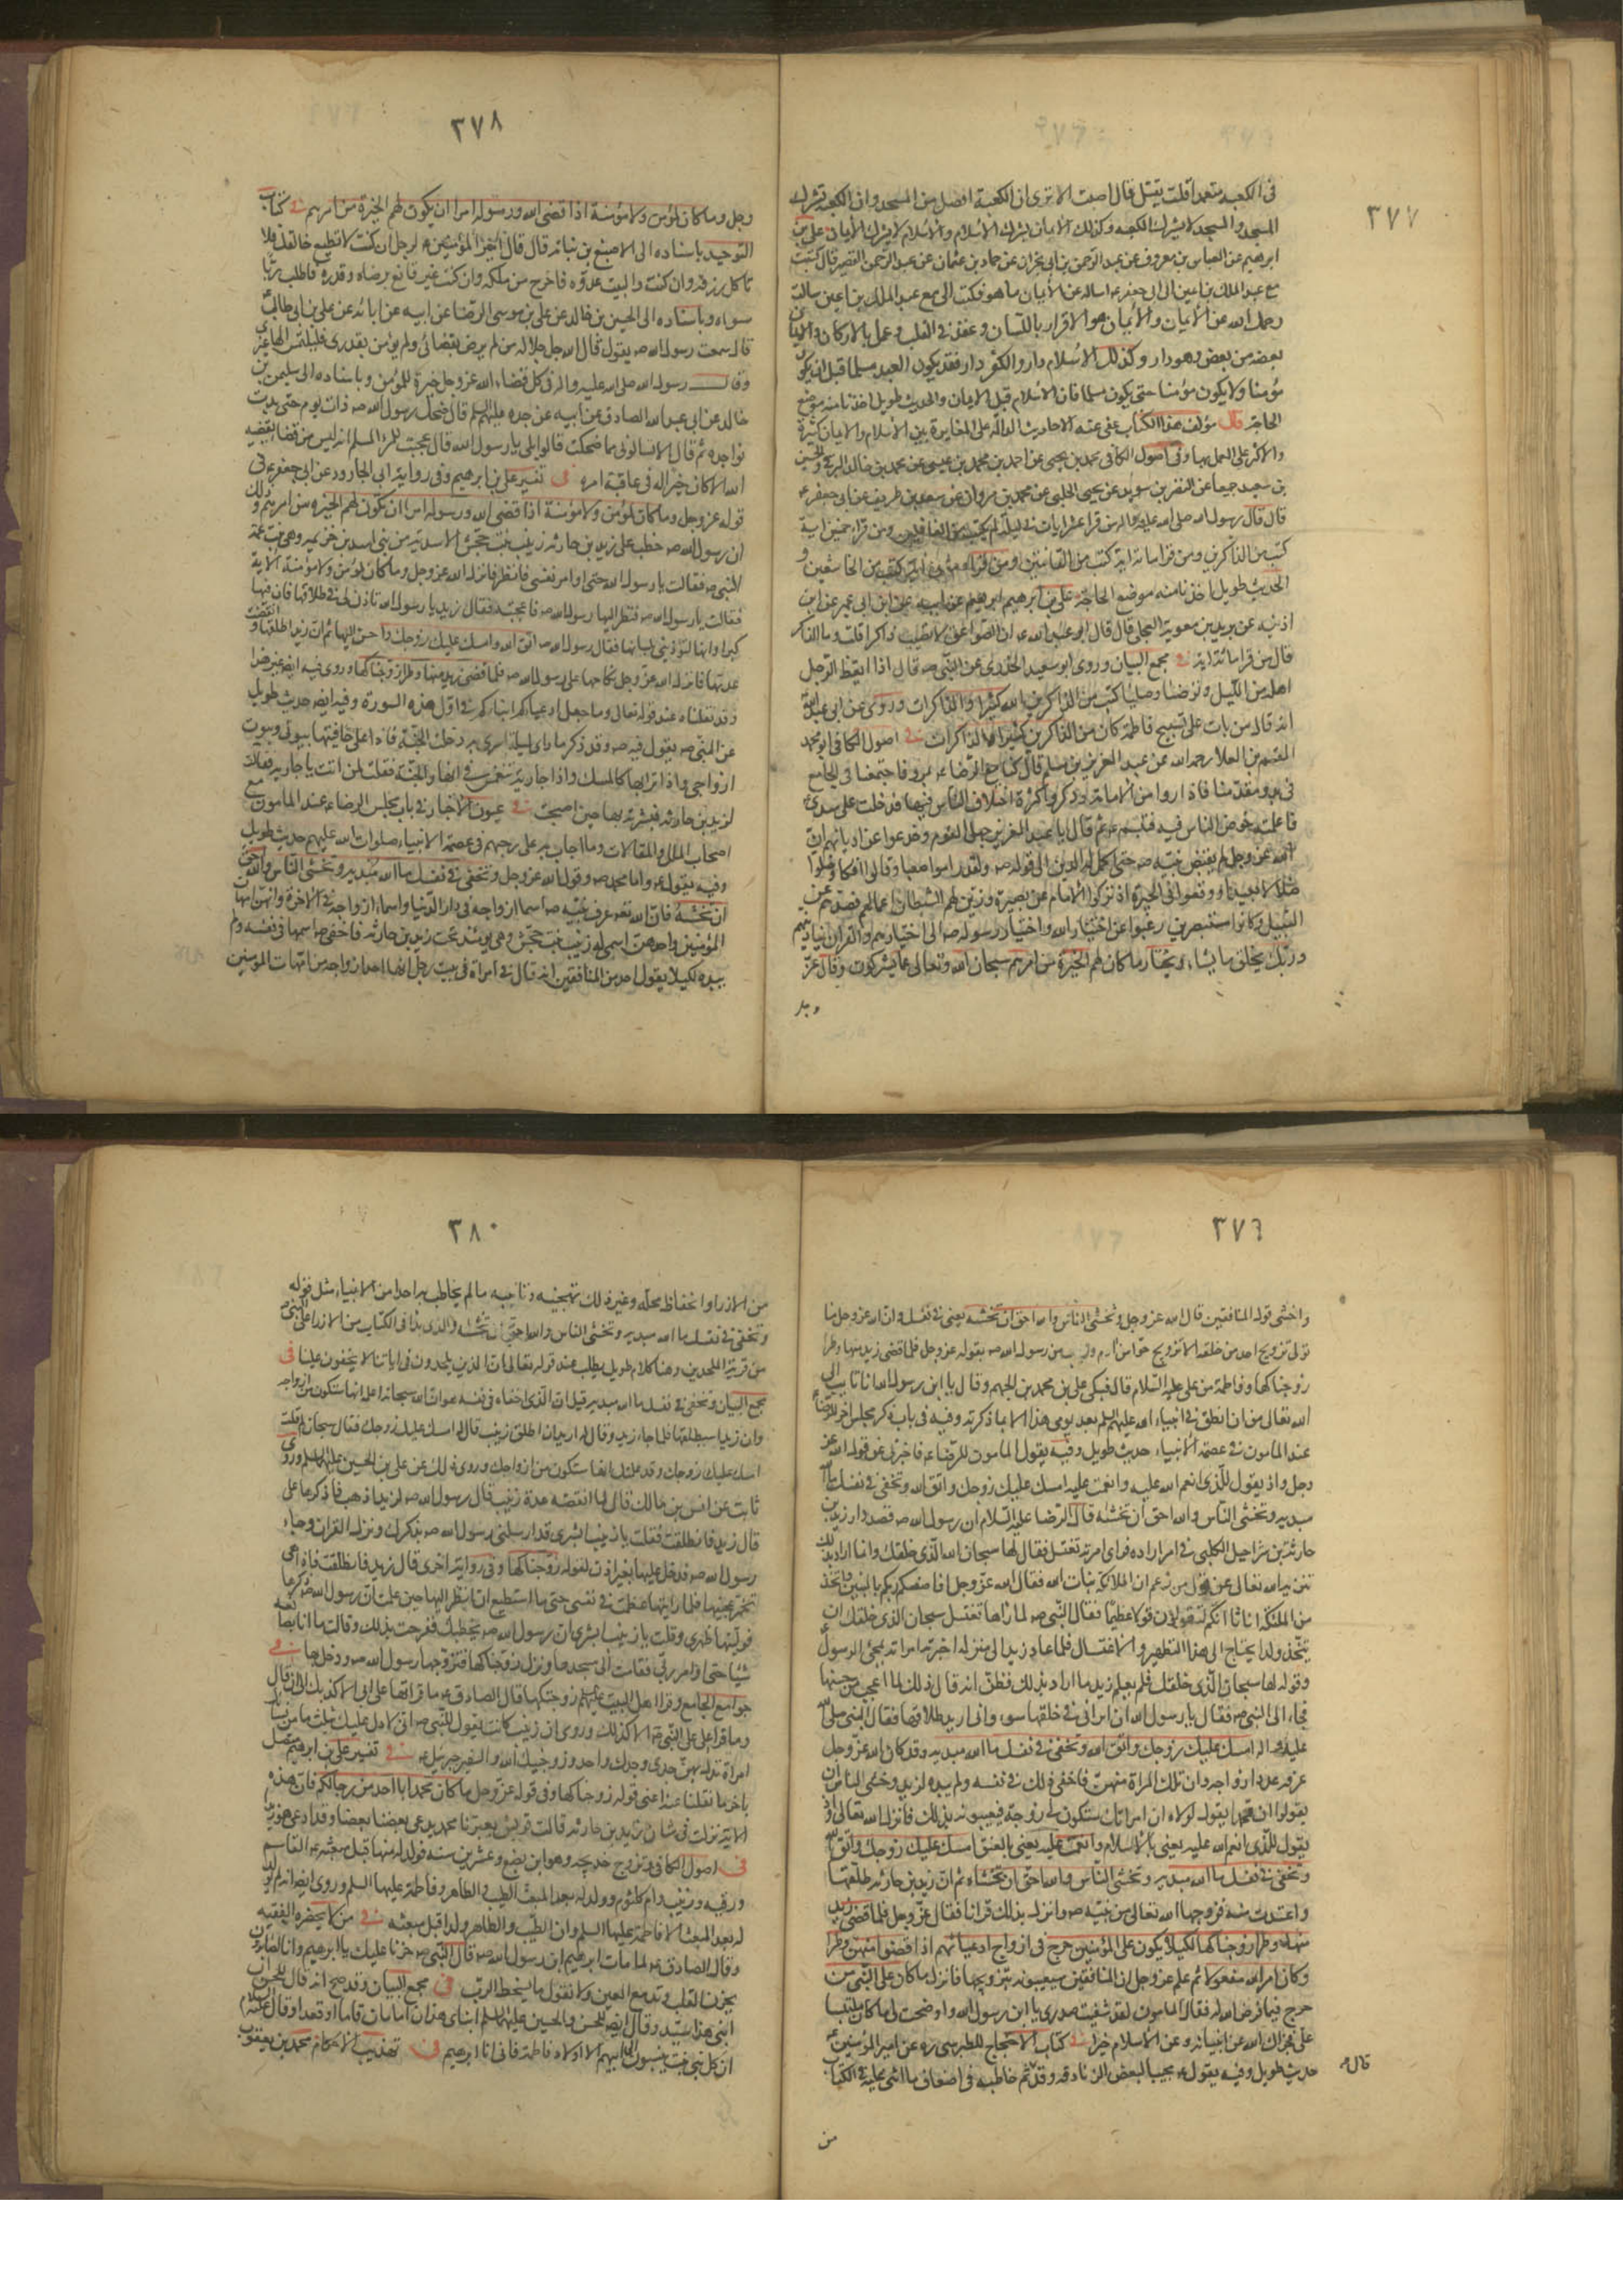 ٣٧٧
فى الكعبة متعمدا قلت يقتل قال اصبت الا ترى ان الكعبة افضل من المسجد وان الكعبة تشرك
المسجد والمسجد لا يشرك الكعبه وكذلك الايمان يشرك الاسلام والاسلام لا يشرك الايمان على بن
ابرهيم عن العباس بن معروف عن عبد الرحمن بن ابى نجران عن حماد بن عثمان عن عبد الرحيم القصير قال كتبت
مع عبد الملك بن اعين الى ابى عبد الله اساله عن الايمان ما هو فكتب الى مع عبد الملك بن اعين سالت
رحمك الله عن الايمان والايمان هو الاقرار باللسان وعقد فى القلب وعمل بالاركان والايمان
بعضه من بعض وهو دار وكذلك الاسلام دار والكفر دار فقد يكون العبد مسلما قبل ان يكون
مؤمنا ولا يكون مؤمنا حتى يكون مسلما فالاسلام قبل الايمان والحديث طويل اخذنا منه موضع
الحاجة قال مؤلف هذا الكتاب عفى عنه الاحاديث الدالة على المغايرة بين الاسلام والايمان كثيرة
والاكثر على العمل بها وفى اصول الكافى محمد بن يحيى عن احمد بن محمد بن عيسى عن محمد بن خالد البرقى والحسين
بن سعيد جميعا عن النضر بن سويد عن يحيى الحلبى عن محمد بن مروان عن سعد بن طريف عن ابى جعفر ع
قال قال رسول الله صلى الله عليه واله من قرا عشر ايات فى ليلة لم يكتب من الغافلين ومن قرا خمسين اية
كتب من الذاكرين ومن قرا مائة اية كتب من القانتين ومن قرا مائتى اية كتب من الخاشعين و
الحديث طويل اخذنا منه موضع الحاجة على بن ابرهيم عن ابيه عن ابن ابى عمير عن ابن
اذينه عن بريد بن معوية العجلى قال قال ابو عبد الله ع ان الصواعق لا تصيب ذاكرا قلت وما الذاكر
قال من قرا مائة اية فى مجمع البيان وروى ابو سعيد الخدرى عن النبى ص قال اذا ايقظ الرجل
اهله من الليل وتوضئا وصليا كتب من الذاكرين الله كثيرا والذاكرات وروى عن ابى عبد الله
انه قال من بات على تسبيح فاطمة كان من الذاكرين كثيرا والذاكرات فى اصول الكافى ابو محمد
القسم بن العلا رحمه الله عن عبد العزيز بن مسلم قال كنا مع الرضا ع بمرو فاجتمعنا فى الجامع
فى بدو مقدمنا فاداروا امر الامامة وذكروا كثرة اختلاف الناس فيها فدخلت على سيدى
فاعلمته خوض الناس فيه فتبسم ع ثم قال يا عبد العزيز جهل القوم وخدعوا عن اديانهم ان
الله عز وجل لم يقبض نبيه ص حتى اكمل له الدين الى قوله ص ولقد راموا صعبا وقالوا افكا وضلوا
ضلالا بعيدا ووقعوا فى الحيرة اذ تركوا الامام عن بصيرة وزين لهم الشيطان اعمالهم فصدهم عن
السبيل وكانوا مستبصرين رغبوا عن اختيار الله واختيار رسوله ص الى اختيارهم والقران يناديهم
وربك يخلق ما يشاء ويختار ما كان لهم الخيرة من امرهم سبحان الله وتعالى عما يشركون وقال عز
وجل
٣٧٨
وجل وما كان لمؤمن ولا مؤمنة اذا قضى الله ورسوله امرا ان يكون لهم الخيرة من امرهم فى كتاب
التوحيد باسناده الى الاصبغ بن نباته قال قال امير المؤمنين ع لرجل ان كنت لا تطيع خالقك فلا
تاكل رزقه وان كنت واليت عدوه فاخرج من ملكه وان كنت غير قانع برضاه وقدره فاطلب ربا
سواه وباسناده الى الحسين بن خالد عن على بن موسى الرضا عن ابيه عن ابائه عن على بن ابى طالب ع
قال سمعت رسول الله ص يقول قال الله جل جلاله من لم يرض بقضائى ولم يؤمن بقدرى فليلتمس الها غيرى
وقال رسول الله صلى الله عليه واله فى كل قضاء الله عز وجل خيرة للمؤمن وباسناده الى سليمن بن
خالد عن ابى عبد الله الصادق عن ابيه عن جده عليهم السلم قال ضحك رسول الله ص ذات يوم حتى بدت
نواجده ثم قال الا تسالونى مما ضحكت قالوا بلى يا رسول الله قال عجبت للمرء المسلم انه ليس من قضاء يقضيه
الله الا كان خيرا له فى عاقبة امره فى تفسير على بن ابرهيم وفى رواية ابى الجارود عن ابى جعفر ع فى
قوله عز وجل وما كان لمؤمن ولا مؤمنة اذا قضى الله ورسوله امرا ان يكون لهم الخيرة من امرهم وذلك
ان رسول الله ص خطب على زيد بن حارثه زينب بنت جحش الاسدية من بنى اسد بن خزيمه وهى بنت عمة
النبى ص فقالت يا رسول الله حتى اوامر نفسى فانظر فانزل الله عز وجل وما كان لمؤمن ولا مؤمنة الاية
فقالت يا رسول الله
كبرا وانها لتوذينى بلسانها فقال رسول الله ص اتق الله وامسك عليك زوجك واحسن اليها ثم ان زيدا طلقها وانقضت
عدتها فانزل الله عز وجل نكاحها على رسول الله ص فلما قضى زيد منها وطرا زوجناكها وروى فيه ايضا غير هذا
وقد نقلناه عند قوله تعالى وما جعل ادعياءكم ابناءكم فى اول هذه السورة وفيه ايضه حديث طويل
عن النبى ص يقول فيه ص وقد ذكر ما راى ليلة اسرى به دخلت الجنة فاذا على حافتيها بيوتى وبيوت
ازواجى واذا ترابها كالمسك واذا جارية تنغمس فى انهار الجنة فقلت لمن انت يا جاريه فقالت
لزيد بن حارثه فبشرته بها حين اصبحت فى عيون الاخبار فى باب مجلس الرضا ع عند المامون مع
اصحاب الملل والمقالات وما اجاب به على بن جهم فى عصمة الانبياء صلوات الله عليهم حديث طويل
وفيه يقول ع واما محمد ص وقول الله عز وجل وتخفى فى نفسك ما الله مبديه وتخشى الناس والله احق
ان تخشيه فان الله تعه عرف نبيه ص اسماء ازواجه فى دار الدنيا واسماء ازواجه فى الاخرة وانهن امهات
المؤمنين واحدهن اسمى له زينب بنت جحش وهى يومئذ تحت زيد بن حارثه فاخفى ص اسمها فى نفسه ولم
يبده لكيلا يقول احد من المنافقين انه قال فى امراة فى بيت رجل انها احد ازواجه من امهات المؤمنين
٣٧٩
واخشى قول المنافقين قال الله عز وجل وتخشى الناس والله احق ان تخشيه يعنى فى نفسك وان الله عز وجل ما
تولى تزويج احد من خلقه الا تزويج حوا من ادم وزينب من رسول الله ص بقوله عز وجل فلما قضى زيد منها وطرا
زوجناكها وفاطمة من على عليه السلام قال فبكى على بن محمد بن الجهم وقال يا ابن رسول الله انا تائب الى
الله تعالى من ان انطق فى انبياء الله عليهم السلم بعد يومى هذا الا بما ذكرته وفيه فى باب ذكر مجلس اخر للرضا ع
عند المامون فى عصمة الانبياء حديث طويل وفيه يقول المامون للرضا ع فاخبرنى عن قول الله عز
وجل واذ تقول للذى انعم الله عليه وانعمت عليه امسك عليك زوجك واتق الله وتخفى فى نفسك ما الله
مبديه وتخشى الناس والله احق ان تخشاه قال الرضا عليه السلام ان رسول الله ص قصد دار زيد بن
حارثة بن شراحيل الكلبى فى امر اراده فراى امرته تغتسل فقال لها سبحان الله الذى خلقك وانما اراد بذلك
تنزيه الله تعالى عن قول من زعم ان الملائكة بنات الله فقال الله عز وجل افاصفيكم ربكم بالبنين واتخذ
من الملئكة اناثا انكم لتقولون قولا عظيما فقال النبى ص لما راها تغتسل سبحان الذى خلقك ان
يتخذ ولدا يحتاج الى هذا التطهير والاغتسال فلما عاد زيد الى منزله اخبرته امراته بمجئ الرسول ص
وقوله لها سبحان الذى خلقك فلم يعلم زيد ما اراد بذلك فظن انه قال ذلك لما اعجبه من حسنها
فجاء الى النبى ص فقال يا رسول الله ان امراتى فى خلقها سوء وانى اريد طلاقها فقال النبى صلى الله
عليه واله امسك عليك زوجك واتق الله وتخفى فى نفسك ما الله مبديه وقد كان الله عز وجل
عرفه عدد ازواجه وان تلك المراة منهن فاخفى ذلك فى نفسه ولم يبده لزيد وخشى الناس ان
يقولوا ان محمدا يقول لمولاه ان امراتك ستكون لى زوجة فيعيبونه بذلك فانزل الله تعالى واذ
تقول للذى انعم الله عليه يعنى بالاسلام وانعمت عليه يعنى بالعتق امسك عليك زوجك واتق الله
وتخفى فى نفسك ما الله مبديه وتخشى الناس والله احق ان تخشاه ثم ان زيد بن حارثه طلقها
واعتدت منه فزوجها الله تعالى من نبيه ص وانزل بذلك قرانا فقال عز وجل فلما قضى زيد
منها وطرا زوجناكها لكيلا يكون على المؤمنين حرج فى ازواج ادعيائهم اذا قضوا منهن وطرا
وكان امر الله مفعولا ثم علم عز وجل ان المنافقين سيعيبونه بتزويجها فانزل ما كان على النبى من
حرج فيما فرض الله له فقال المامون لقد شفيت صدرى يا ابن رسول الله واوضحت لى ما كان ملتبسا
على فجزاك الله عن انبيائه وعن الاسلام خيرا فى كتاب الاحتجاج للطبرسى ره عن امير المؤمنين ع
حديث طويل وفيه يقول ع مجيبا لبعض الزنادقه وقد
من
٣٨٠
من الازراء وانخفاظ محله وغير ذلك تهجينه وتانيبه ما لم يخاطب به احدا من الانبياء مثل قوله
وتخفى فى نفسك ما الله مبديه وتخشى الناس والله احق ان تخشاه والذى بدا فى الكتاب من الازراء على النبى ص
من فرية الملحدين وهنا كلام طويل يطلب عند قوله تعالى ان الذين يلحدون فى اياتنا لا يخفون علينا فى
مجمع البيان وتخفى فى نفسك ما الله مبديه قيل ان الذى اخفاه فى نفسه هو ان الله سبحانه اعلمه انها ستكون من ازواجه
وان زيدا سيطلقها فلما جاء زيد وقال له اريد ان اطلق زينب قال له امسك عليك زوجك فقال سبحانه لم قلت
امسك عليك زوجك وقد اعلمتك انها ستكون من ازواجك وروى ذلك عن على بن الحسين عليهما السلم وروى
ثابت عن انس بن مالك قال لما انقضت عدة زينب قال رسول الله ص لزيد اذهب فاذكرها على
قال زيد فانطلقت فقلت يا زينب ابشرى قد ارسلنى رسول الله ص بذكرك ونزل القران وجاء
رسول الله ص فدخل عليها بغير اذن لقوله زوجناكها وفى رواية اخرى قال زيد فانطلقت فاذا هى
تخمر عجينها فلما رايتها عظمت فى نفسى حتى ما استطيع ان انظر اليها حين علمت ان رسول الله ص ذكرها
فوليتها ظهرى وقلت يا زينب ابشرى ان رسول الله ص يخطبك ففرحت بذلك وقالت ما انا بصانعة
شيئا حتى اوامر ربى فقامت الى مسجدها ونزل زوجناكها فتزوجها رسول الله ص ودخل بها فى
جوامع الجامع وقرا اهل البيت عليهم السلم زوجتكها قال الصادق ع ما قراتها على ابى الا كذلك الى ان قال
وما قرا على على النبى ص الا كذلك وروى ان زينب كانت تقول للنبى ص انى لادل عليك بثلث ما من نسائك
امراة تدل بهن جدى وجدك واحد وزوجنيك الله والسفير جبرئيل ع فى تفسير على بن ابرهيم متصل
باخر ما نقلنا عنه اعنى قوله زوجناكها وفى قوله عز وجل ما كان محمد ابا احد من رجالكم فان هذه
الاية نزلت فى شان زيد بن حارثه قالت قريش يعيرنا محمد يدعى بعضنا بعضا وقد ادعى هو زيدا
فى اصول الكافى وتزوج خديجة وهو ابن بضع وعشرين سنه فولد له منها قبل مبعثه ع القاسم
ورقيه وزينب وام كلثوم وولد له بعد المبعث الطيب والطاهر وفاطمة عليها السلم وروى ايضا انه لم يولد
له بعد المبعث الا فاطمة عليها السلم وان الطيب والطاهر ولدا قبل مبعثه فى من لا يحضره الفقيه
وقال الصادق ع لما مات ابرهيم ابن رسول الله ص قال النبى ص حزنا عليك يا ابرهيم وانا لصابرون
يحزن القلب وتدمع العين ولا نقول ما يسخط الرب فى مجمع البيان وقد صح انه قال للحسن ان
ابنى هذا سيد وقال ايضه للحسن والحسين عليهما السلم ابناى هذان امامان قاما او قعدا وقال
ان كل بنى بنت ينسبون الى ابيهم الا اولاد فاطمة فانى انا ابوهم فى تهذيب الاحكام محمد بن يعقوب